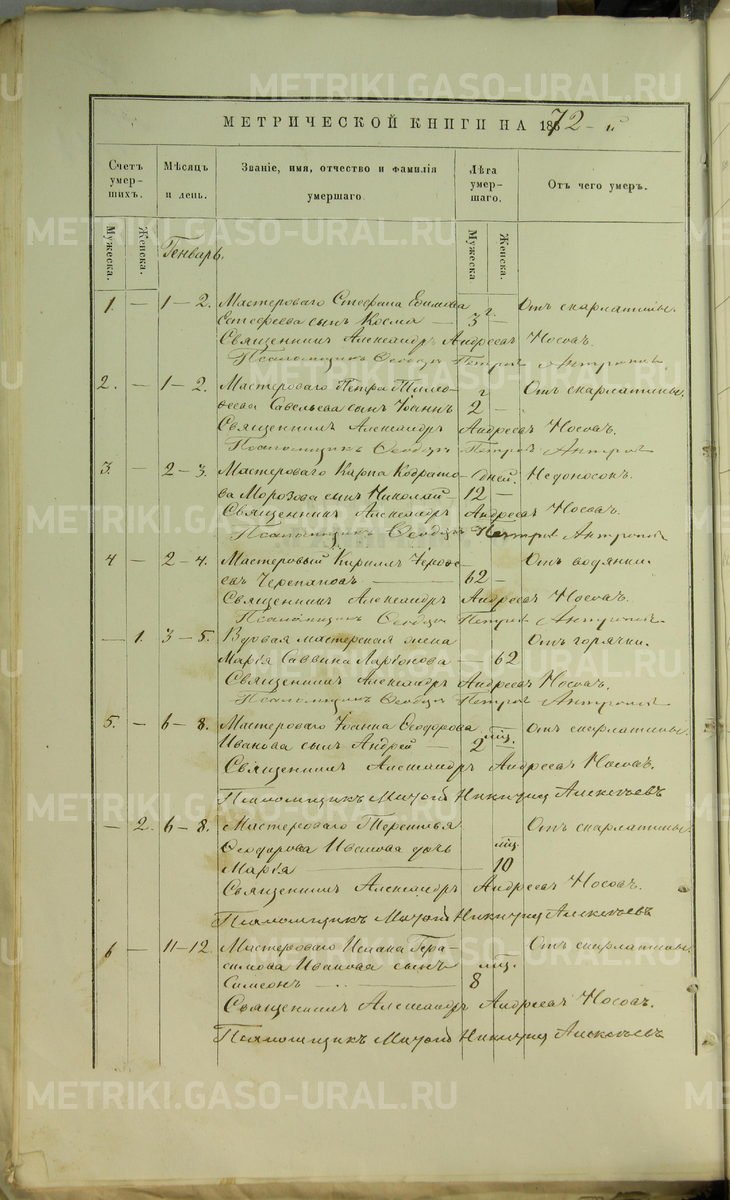 МЕТРИЧЕСКОЙ КНИГИ НА 1872-й
Счетъ умер- шихъ. Мѣсяцъ и день. Званіе, имя, отчество и фамилія умершаго. Лѣта умер- шаго. Отъ чего умеръ.
Мужеска. Женска. Генварь. Мужеска Женска.
1. — 1—2. Мастероваго Стефана Ефимова г. Отъ скарлатины.
Естефеева сынъ Косма — 3 —
Священникъ Александръ Андреевъ Носовъ.
Псаломщикъ Ѳеодоръ Петровъ
2. — 1—2. Мастероваго Петра Тимо- г Отъ скарлатины.
ѳеева Савельева сынъ Іоаннъ 2 —
Священникъ Александръ Андреевъ Носовъ.
Псаломщикъ Ѳеодоръ Петровъ
3. — 2—3. Мастероваго Карпа Кодрато- дней. Недоносокъ.
ва Морозова сынъ Николай — 12 —
Священникъ Александръ Андреевъ Носовъ.
Псаломщикъ Ѳеодоръ Петровъ
4 — 2—4. Мастеровый Кириллъ Отъ водянки.
евъ Черепановъ — 62 —
Священникъ Александръ Андреевъ Носовъ.
Псаломщикъ Ѳеодоръ Петровъ
— 1. 3—5. Вдовая мастерская жена Отъ горячки.
Марія Саввина Ларіонова — 62
Священникъ Александръ Андреевъ Носовъ.
Псаломщикъ Ѳеодоръ Петровъ
5. — 6—8. Мастероваго Іоанна Ѳеодорова мѣс. Отъ скарлатины.
Иванова сынъ Андрей — 2 —
Священникъ Александръ Андреевъ Носовъ.
Псаломщикъ Никитинъ Алексѣевъ
— 2. 6—8. Мастероваго Терентья Отъ скарлатины.
Ѳеодорова Иванова дочь мѣс.
Марія — 10
Священникъ Александръ Андреевъ Носовъ.
Псаломщикъ Никитинъ Алексѣевъ
6 — 11—12. Мастероваго Исаака Гера- Отъ скарлатины.
симова Иванова сынъ мѣс.
Симеонъ — 8
Священникъ Александръ Андреевъ Носовъ.
Псаломщикъ Никитинъ Алексѣевъ
METRIKI.GASO-URAL.RU